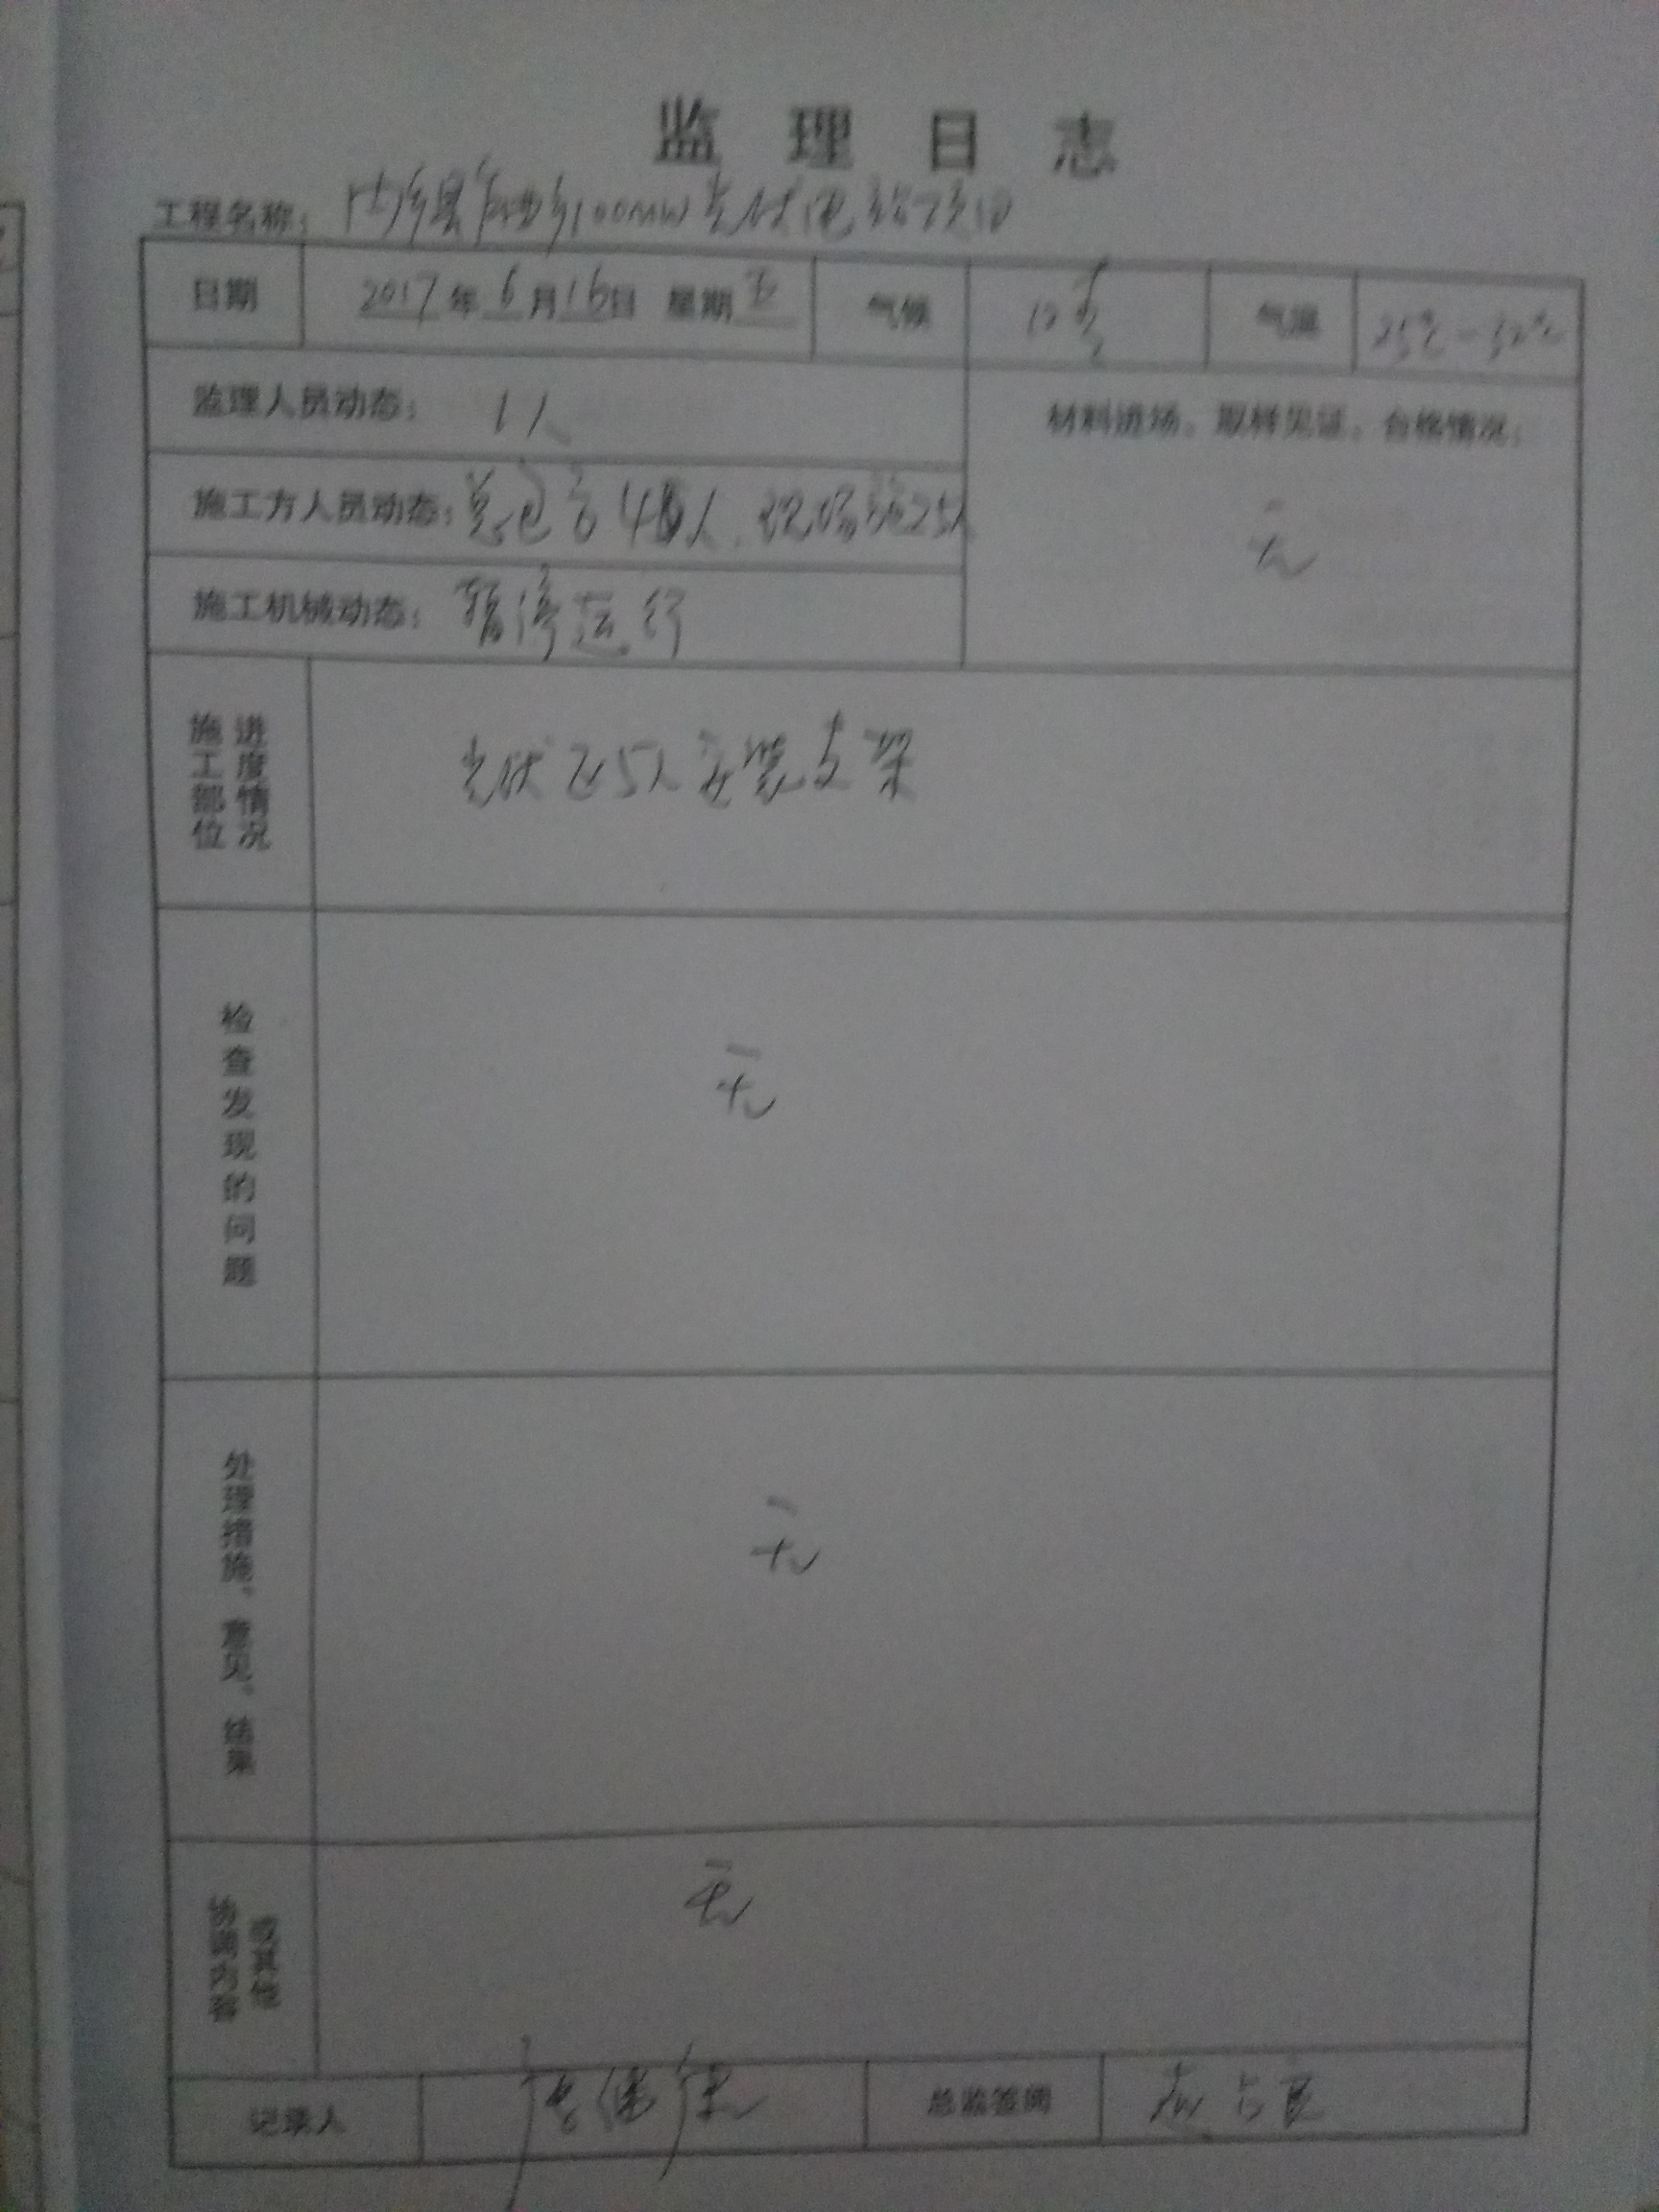 监理日志
工程名称：县100MW光伏电站项目
日期 2017年6月16日 星期五 气候 气温 25℃-32℃
监理人员动态： 1人
材料进场、取样见证、合格情况：
无
施工方人员动态：总包方 人，现场 25人
施工机械动态：暂停运行
施工部位进度情况 光伏区5人安装支架
检查发现的问题 无
处理措施、意见、结果 无
或其他 无
记录人 总监签阅